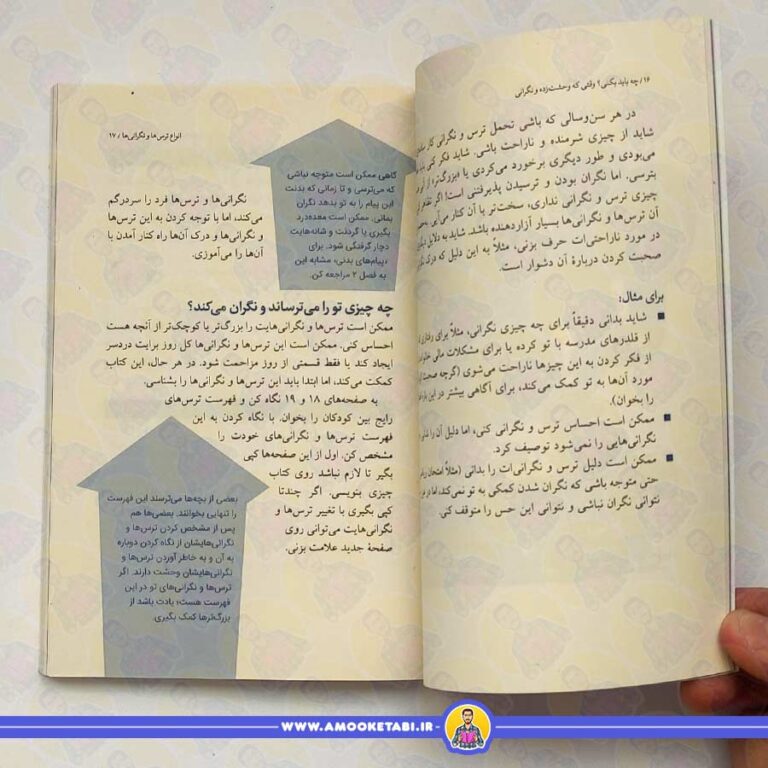 ۱۶/ چه باید بکنی؟ وقتی که وحشت‌زده و نگرانی
در هر سن‌وسالی که باشی تحمل ترس و نگرانی کار
شاید از چیزی شرمنده و ناراحت باشی. شاید فکر کنی
می‌بودی و طور دیگری برخورد می‌کردی یا «بزرگ‌تر» از آنی
بترسی. اما نگران بودن و ترسیدن پذیرفتنی است! اگر
چیزی ترس و نگرانی نداری، سخت‌تر با آن کنار می‌آیی.
آن ترس‌ها و نگرانی‌ها بسیار آزاردهنده باشد. شاید به دلایل
در مورد ناراحتی‌ات حرف بزنی، مثلاً به این دلیل که درک
صحبت کردن دربارهٔ آن دشوار است.
برای مثال:
■ شاید بدانی دقیقاً برای چه چیزی نگرانی، مثلاً برای
از قلدرهای مدرسه با تو کرده یا برای مشکلات مالی
از فکر کردن به این چیزها ناراحت می‌شوی (گرچه صحبت
مورد آن‌ها به تو کمک می‌کند، برای آگاهی بیشتر در این
را بخوان).
■ ممکن است احساس ترس و نگرانی کنی، اما دلیل آن را
نگرانی‌هایی را نمی‌شود توصیف کرد.
■ ممکن است دلیل ترس و نگرانی‌ات را بدانی (مثلاً امتحان
حتی متوجه باشی که نگران شدن کمکی به تو نمی‌کند، اما در
نتوانی نگران نباشی و نتوانی این حس را متوقف کنی.
انواع ترس‌ها و نگرانی‌ها / ۱۷
گاهی ممکن است متوجه نباشی
که می‌ترسی و تا زمانی که بدنت
این پیام را به تو بدهد نگران
بمانی. ممکن است معده‌درد
بگیری یا گردنت و شانه‌هایت
دچار گرفتگی شود. برای
«پیام‌های بدنی» مشابه این
به فصل ۲ مراجعه کن.
نگرانی‌ها و ترس‌ها فرد را سردرگم
می‌کند، اما با توجه کردن به این ترس‌ها
و نگرانی‌ها و درک آن‌ها راه کنار آمدن با
آن‌ها را می‌آموزی.
چه چیزی تو را می‌ترساند و نگران می‌کند؟
ممکن است ترس‌ها و نگرانی‌هایت را بزرگ‌تر یا کوچک‌تر از آنچه هست
احساس کنی. ممکن است این ترس‌ها و نگرانی‌ها کل روز برایت دردسر
ایجاد کند یا فقط قسمتی از روز مزاحمت شود. در هر حال، این کتاب
کمکت می‌کند، اما ابتدا باید این ترس‌ها و نگرانی‌ها را بشناسی.
به صفحه‌های ۱۸ و ۱۹ نگاه کن و فهرست ترس‌های
رایج بین کودکان را بخوان. با نگاه کردن به این
فهرست ترس‌ها و نگرانی‌های خودت را
مشخص کن. اول از این صفحه‌ها کپی
بگیر تا لازم نباشد روی کتاب
چیزی بنویسی. اگر چندتا
کپی بگیری با تغییر ترس‌ها و
نگرانی‌هایت می‌توانی روی
صفحهٔ جدید علامت بزنی.
بعضی از بچه‌ها می‌ترسند این فهرست
را تنهایی بخوانند. بعضی‌ها هم
پس از مشخص کردن ترس‌ها و
نگرانی‌هایشان از نگاه کردن دوباره
به آن و به خاطر آوردن ترس‌ها و
نگرانی‌هایشان وحشت دارند. اگر
ترس‌ها و نگرانی‌های تو در این
فهرست هست؛ یادت باشد از
بزرگ‌ترها کمک بگیری.
WWW.AMOOKETABI.IR